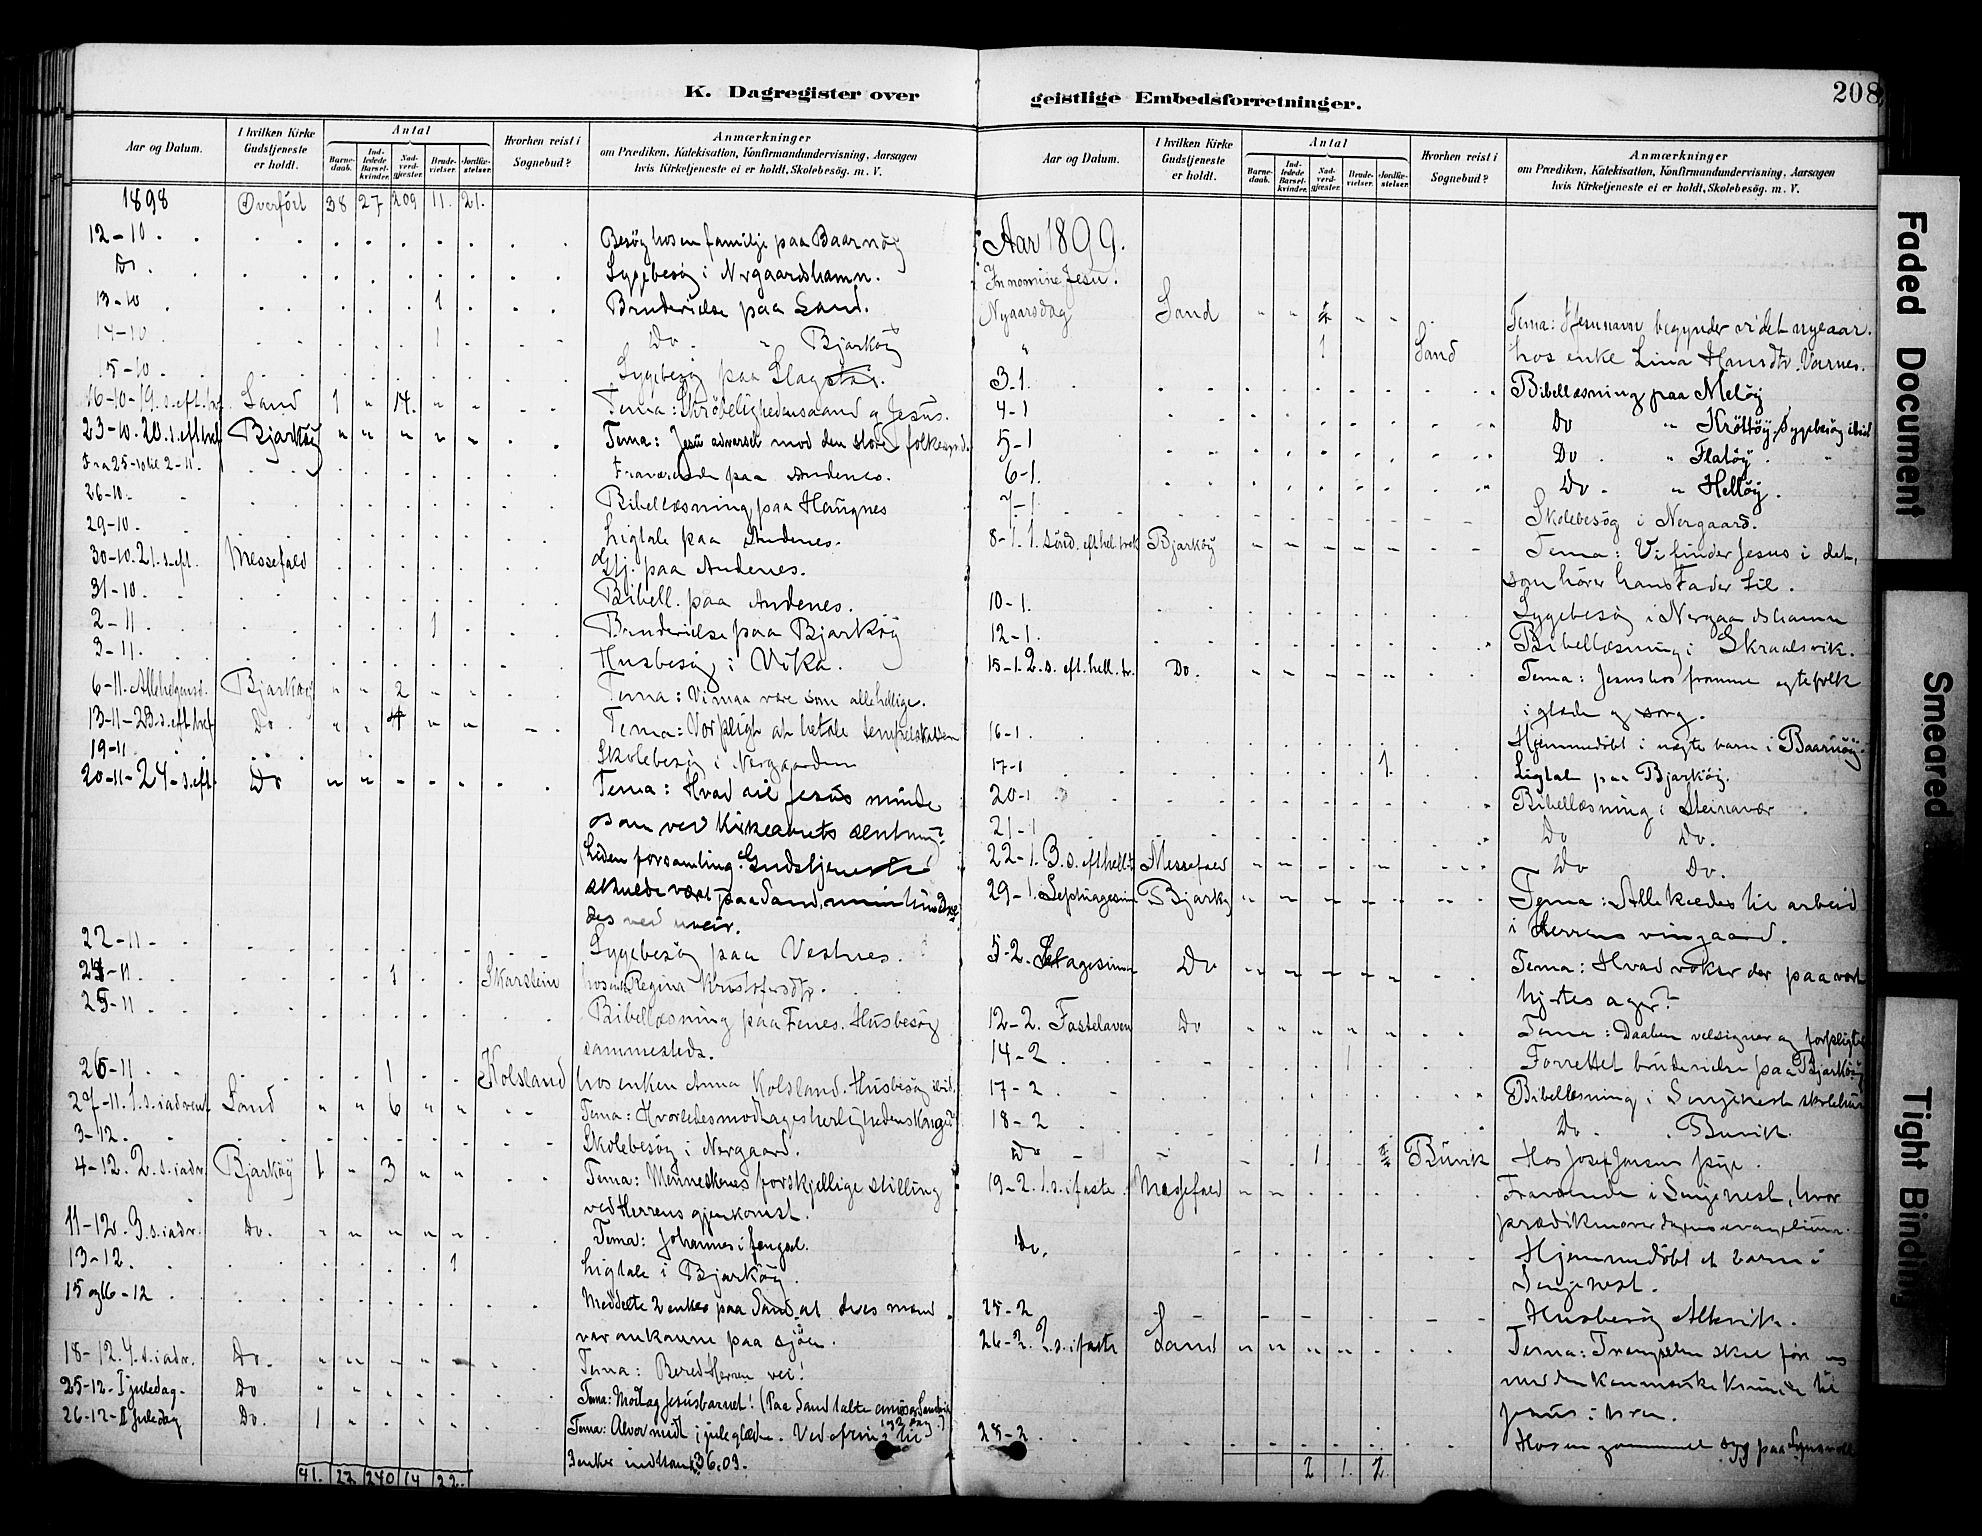 K. Dagregister over
Aar og Datum.
I hvilken Kirke Gudstjeneste er holdt.
Antal
Barnedaab.
Indledede Barselkvinder.
Nadverdgjæster.
Brudevielser.
Jordfæstelser.
Hvorhen reist i Sognebud?
Anmærkninger
om Prædiken, Katekisation, Konfirmandundervisning, Aarsagen
hvis Kirketjeneste ei er holdt, Skolebesøg. m. V.
1898 Overført 38 27 209 11. 21.
12-10. Besøg hos en familje paa Baarnøy
Do. Sygebesøg i Nergaardshamn.
13-10 1 Brudevielse paa Sand.
14-10. 1 Do. " Bjarkøy
15-10. Sygebesøg paa Slagstad.
16-10-19.s.eft.tref. Sand 1 " 14. " " Tema: Skrøbelighedensaand og Jesus.
23-10. 20.s.eft.tref Bjarkøy " " " " " Tema: Jesu advarsel mod den store
Fra 25-10 til 2-11. Fraværende paa Andenes.
26-10. Bibellæsning paa Haugnes
29-10. Ligtale paa Andenes.
30-10. 21.s.eft. Messefald Gtj. paa Andenes.
31-10. Bibell. paa Andenes.
2-11. 1 Brudevielse paa Bjarkøy
3-11. Husbesøg i Vika.
6-11. Allehelgensd. Bjarkøy " " 2 " " Tema: Vi maa være som alle hellige.
13-11-23.s.eft.tref Do. " " 4 " " Tema: Vor pligt at betale tempelskatten
19-11. Skolebesøg i Nergaarden
20-11-24-s.eft. Do " " - - - Tema: Hvad vil Jesus minde
os om ved Kirkeaarets
(Liden forsamling. Gudstjeneste
skulde været paa Sand, men hindre-
des ved uveir.
22-11- Sygebesøg paa Vestnes.
24-11. 1 Skarstein hos Regina Kristofersdtr.
25-11 Bibellæsning paa Fenes. Husbesøg
sammesteds.
26-11 1 Kolsland hos enken Anna Kolsland. Husbesøg ibid.
27-11. 1.s.i advent Sand " " 6 " " Tema: Hvorledes modtages herlighedens Konge?
3-12. Skolebesøg i Nergaard.
4-12. 2.s.i adv. Bjarkøy 1 " 3 " " Tema: Menneskenes forskjellige stilling
ved Herrens gjenkomst.
11-12. 3.s.i adv. Do. " " " " " Tema: Johannes i fængsel.
13-12. 1 Ligtale i Bjarkøy.
15 og 16-12 Meddelte 2 enker paa Sand at deres mænd
var omkomne paa sjøen.
18-12. 4.s.i adv. Do. " " " " Tema: Bered Herren vei!
25-12-I juledag- Do Tema: Modtag Jesusbarnet! (Paa Sand talte
26-12-II juledag Do. 1 Tema: Alvor midt i juleglæden. Ved til
3 enker indkom 36.03.
41. 27. 240 14 22.
geistlige Embedsforretninger.
208
Aar og Datum.
I hvilken Kirke Gudstjeneste er holdt.
Antal
Barnedaab.
Indledede Barselkvinder.
Nadverdgjæster.
Brudevielser.
Jordfæstelser.
Hvorhen reist i Sognebud?
Anmærkninger
om Prædiken, Katekisation, Konfirmandundervisning, Aarsagen
hvis Kirketjeneste ei er holdt, Skolebesøg. m. V.
Aar 1899.
In nomine Jesu!
Nyaarsdag Sand Tema: I Jesu navn begynder vi det nye aar.
" 1 Sand hos enke Lina Hansdtr. Varnes.
3-1. Bibellæsning paa Meløy
4-1 Do " Krøttøy, Sygebesøg ibid
5-1 Do. " Flatøy.
6-1. Do. " Helløy.
7-1 Skolebesøg i Nergaard.
8-1. 1. Sønd. eft. hel. trek Bjarkøy Tema: Vi finder Jesus i det,
som hører hans Fader til.
10-1. Sygebesøg i Nergaardshamn
12-1. Bibellæsning i Skraalsvik.
15-1. 2.s. eft. hell. tr. Do. Tema: Jesus hos fromme egtefolk
i glæde og sorg.
16-1. Hjemmedøbt i barn i Baarnøy.
17-1 1. Ligtale paa Bjarkøy.
20-1 Bibellæsning i Steinavær
21-1 Do Do.
22-1. 3.s. eft. hell. Messefald Do Do.
29-1. Septuagesim Bjarkøy Tema: Alle kaldes til arbeid
i Herrens vingaard.
5-2. Sexagesima Do Tema: Hvad vokser der paa vort
hjertes ager?
12-2. Fastelaven Do Tema: Daaben velsigner og forpligter
14-2 1 Forrettet brudevielse paa Bjarkøy
17-2 Bibellæsning i Senjenest skolehus
18-2 Do. " Buvik.
Do 1. Buvik Hos Josef Jensens pige.
19-2. 1.s.i faste. Messefald Fraværende i Senjenest, hvor
prædiken over dagens evangelium.
Do. Hjemmedøbt et barn i
Senjenest.
25-2 Husbesøg Alkvik.
26-2 2.s.i faste Sand Tema: Trængselen skal føre os
med den kananæiske kvinde til
Jesus i bøn.
28-2 Hos en gammel syg paa
2 1. 2.
Faded Document
Smeared
Tight Binding